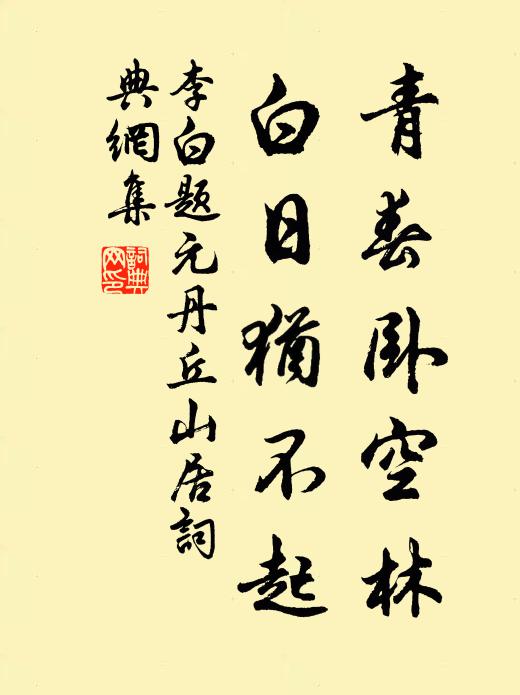 青春卧空林
白日猶不起
李白题元丹丘山居詞
典網集
詞典
网印